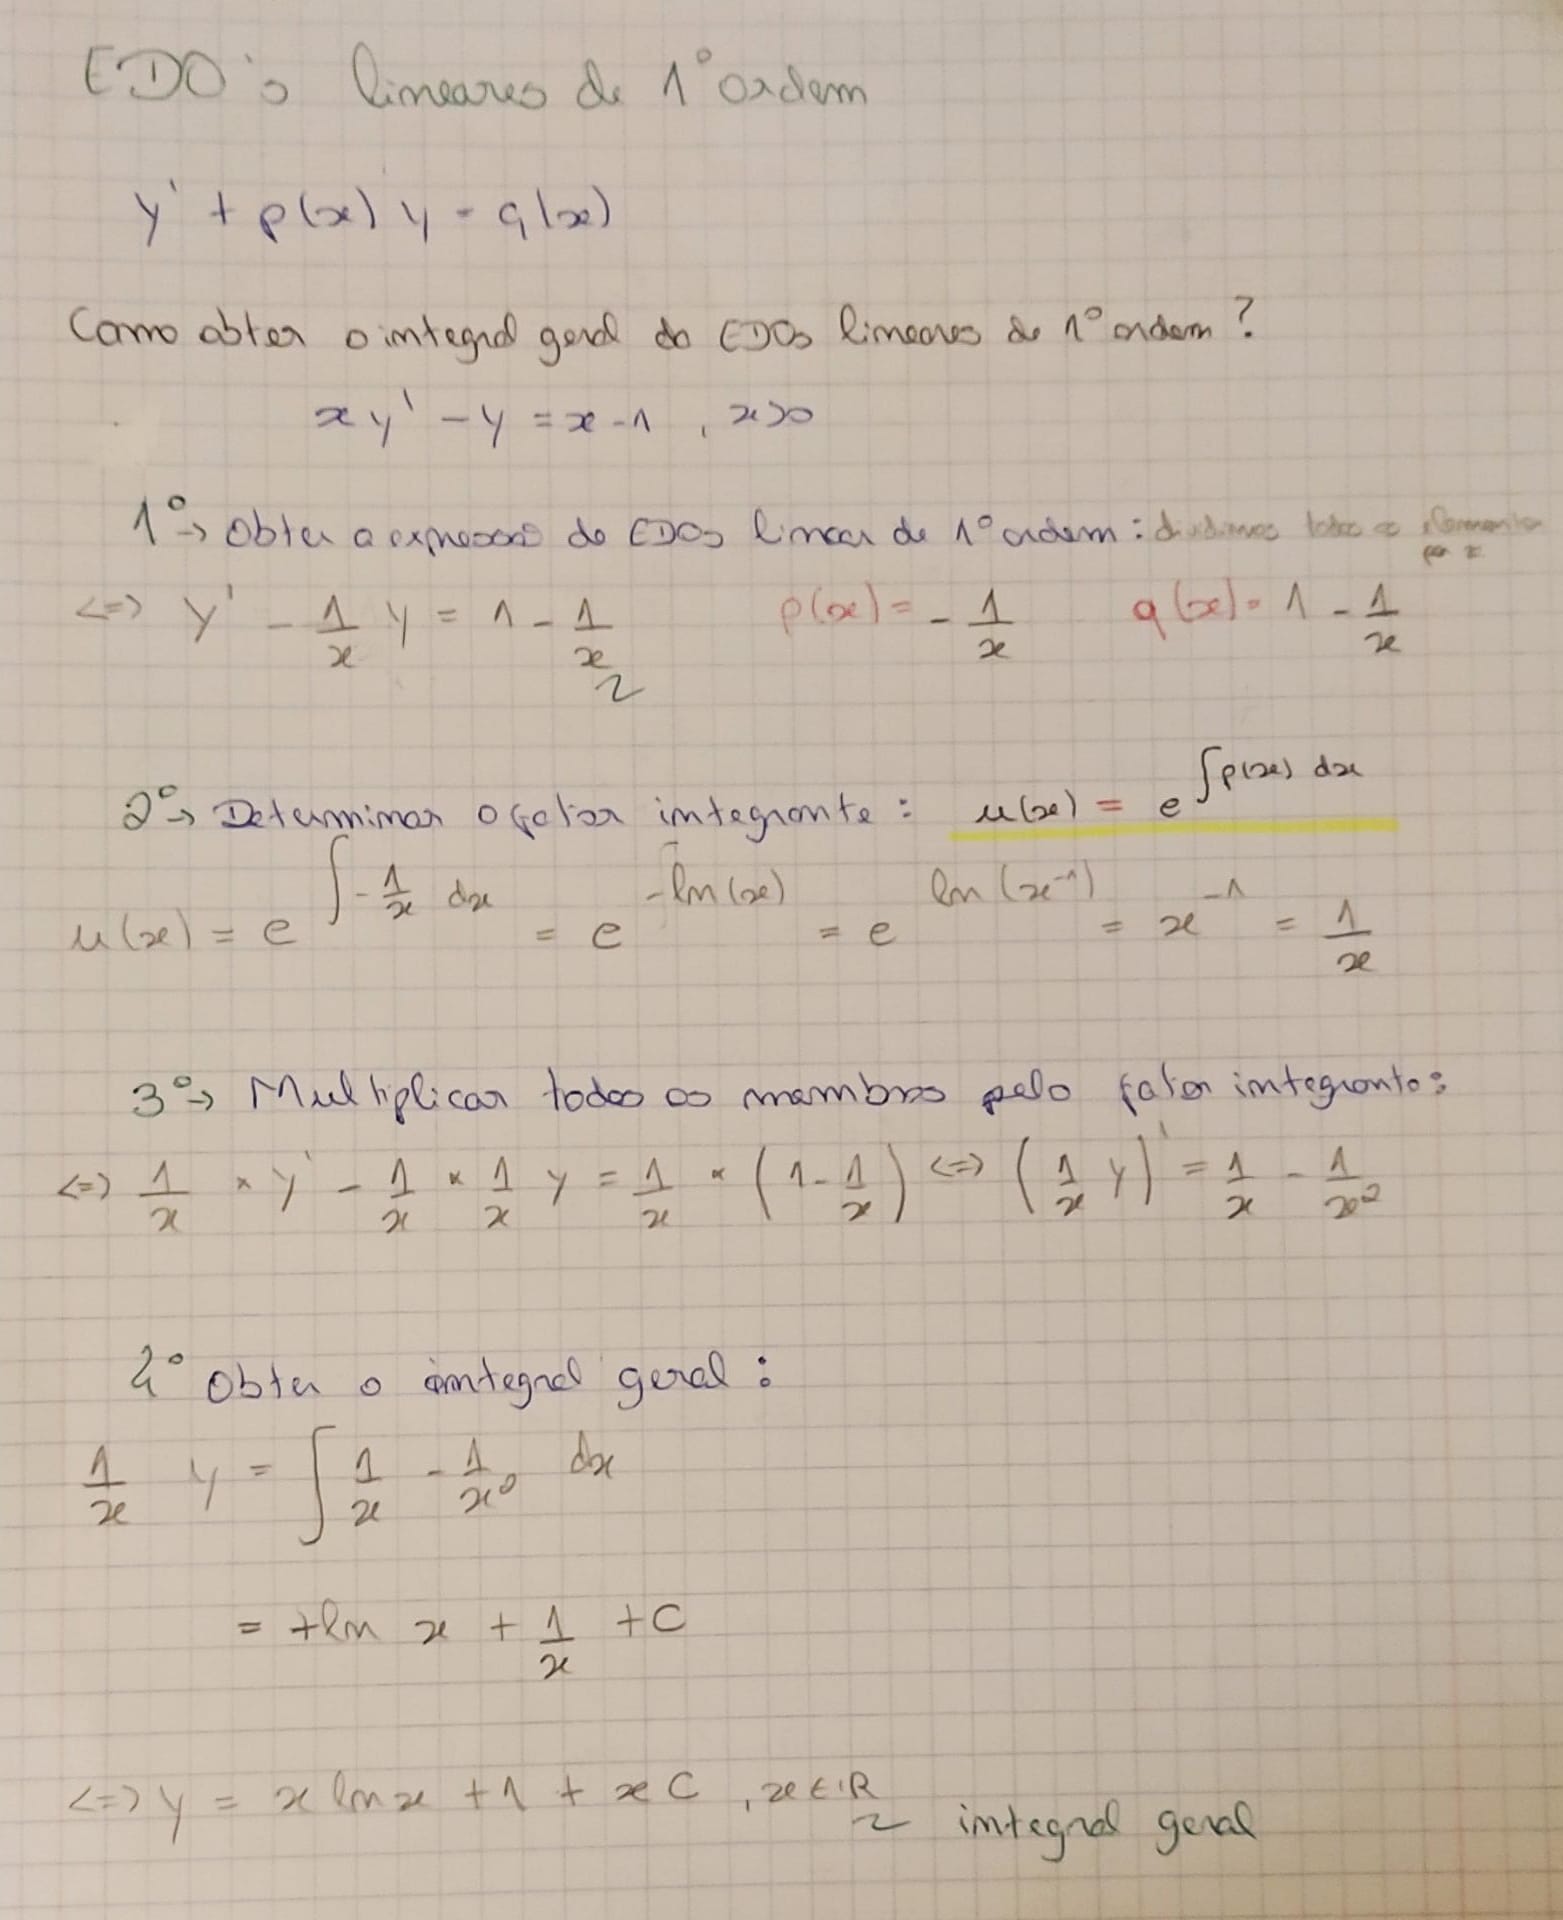 EDO's lineares de 1º ordem
y' + p(x) y = q(x)
Como obter o integral geral do EDOs lineares de 1º ordem?
xy' - y = x - 1 , x>0
1º→ Obter a expressão de EDOs linear de 1º ordem: dividimos todos os elementos por x
<=> y' - 1/x y = 1 - 1/x p(x) = - 1/x q(x) = 1 - 1/x
2º→ Determinar o fator integrante: u(x) = e^∫p(x) dx
u(x) = e^∫-1/x dx = e^-ln(x) = e^ln(x^-1) = x^-1 = 1/x
3º→ Multiplicar todos os membros pelo fator integrante:
<=> 1/x × y' - 1/x × 1/x y = 1/x × (1 - 1/x) <=> (1/x y)' = 1/x - 1/x²
4º Obter o integral geral:
1/x y = ∫ 1/x - 1/x² dx
= +ln x + 1/x + C
<=> y = x ln x + 1 + x C , x ∈ IR integral geral